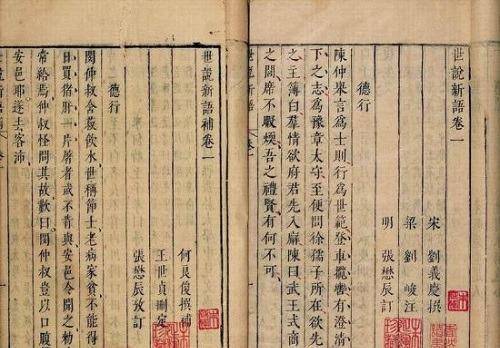 世說新語卷一
宋 劉義慶撰
梁 劉峻注
明 張懋辰訂
德行
陳仲舉言為士則行為世範登車攬轡有澄清
下之志為豫章太守至便問徐孺子所在欲先
之主簿白羣情欲府君先入廨陳曰武王式商
之閭席不暇煖吾之禮賢有何不可
世說新語 卷一
世說新語補卷一
何良俊撰補
王世貞刪定
張懋辰攷訂
德行
閔仲叔含菽飲水世稱節士老病家貧不能得
日買猪肝一片屠者或不肯與安邑令聞之勑
常給焉仲叔怪問其故歎曰閔仲叔豈以口腹
安邑耶遂去客沛